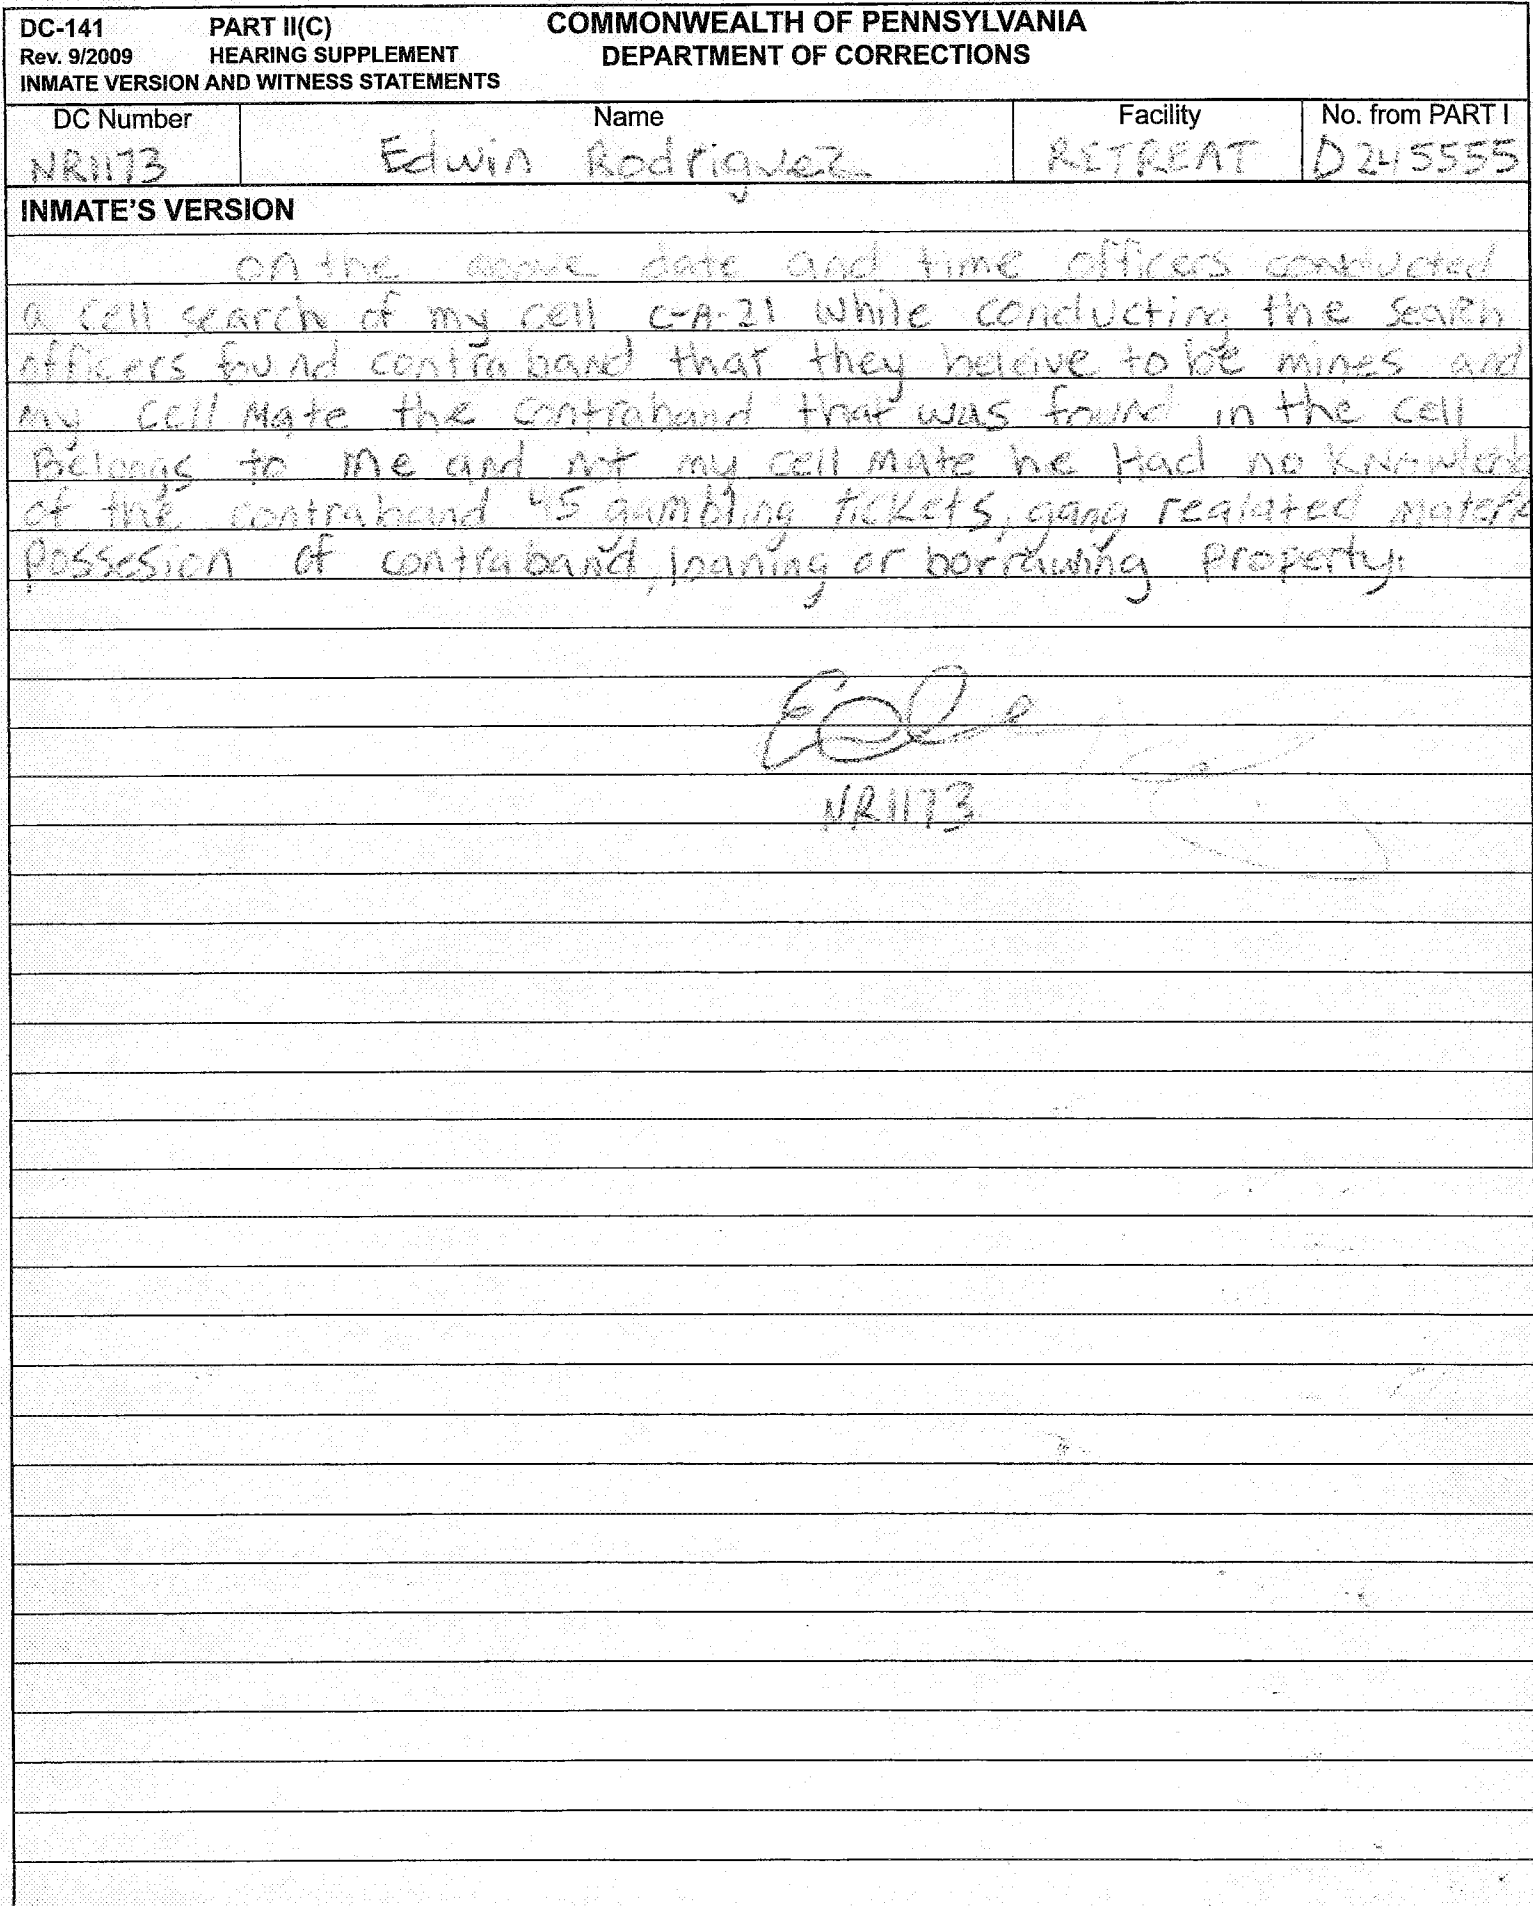 DC-141 PART II(C) COMMONWEALTH OF PENNSYLVANIA
Rev. 9/2009 HEARING SUPPLEMENT DEPARTMENT OF CORRECTIONS
INMATE VERSION AND WITNESS STATEMENTS
DC Number Name Facility No. from PART I
NR1173 Edwin Rodriguez RETREAT D245555
INMATE'S VERSION
on the above date and time officers conducted
a cell search of my cell C-A-21 While conducting the search
officers found contraband that they beleive to be mines and
my cell Mate the contraband that was found in the cell
Belongs to me and not my cell mate he Had no
of the contraband 45 gambling tickets, gang realated
Possesion of contraband, loaning or borrawing property.
NR1173